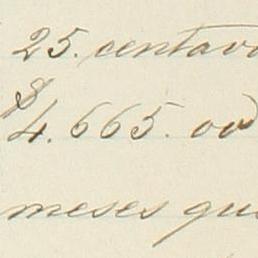 25. centavo
$4.665. oo
meses que